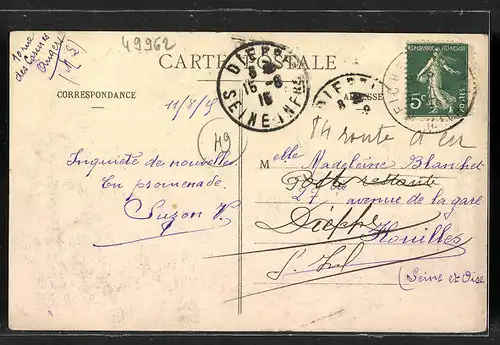 10 rue
des Carmes
Angers
49962
CARTE POSTALE
DIEPPE
15 - 8
15
SEINE INFRE
DIEPPE
REPUBLIQUE FRANÇAISE
5c
CORRESPONDANCE
ADRESSE
11/8/15
49
74 route d'eu
Melle Madeleine Blanchet
Poste restante
27 avenue de la gare
Dieppe
Houilles
S. Inf
(Seine et Oise
Inquiète de nouvelles
En promenade
Suzon V.